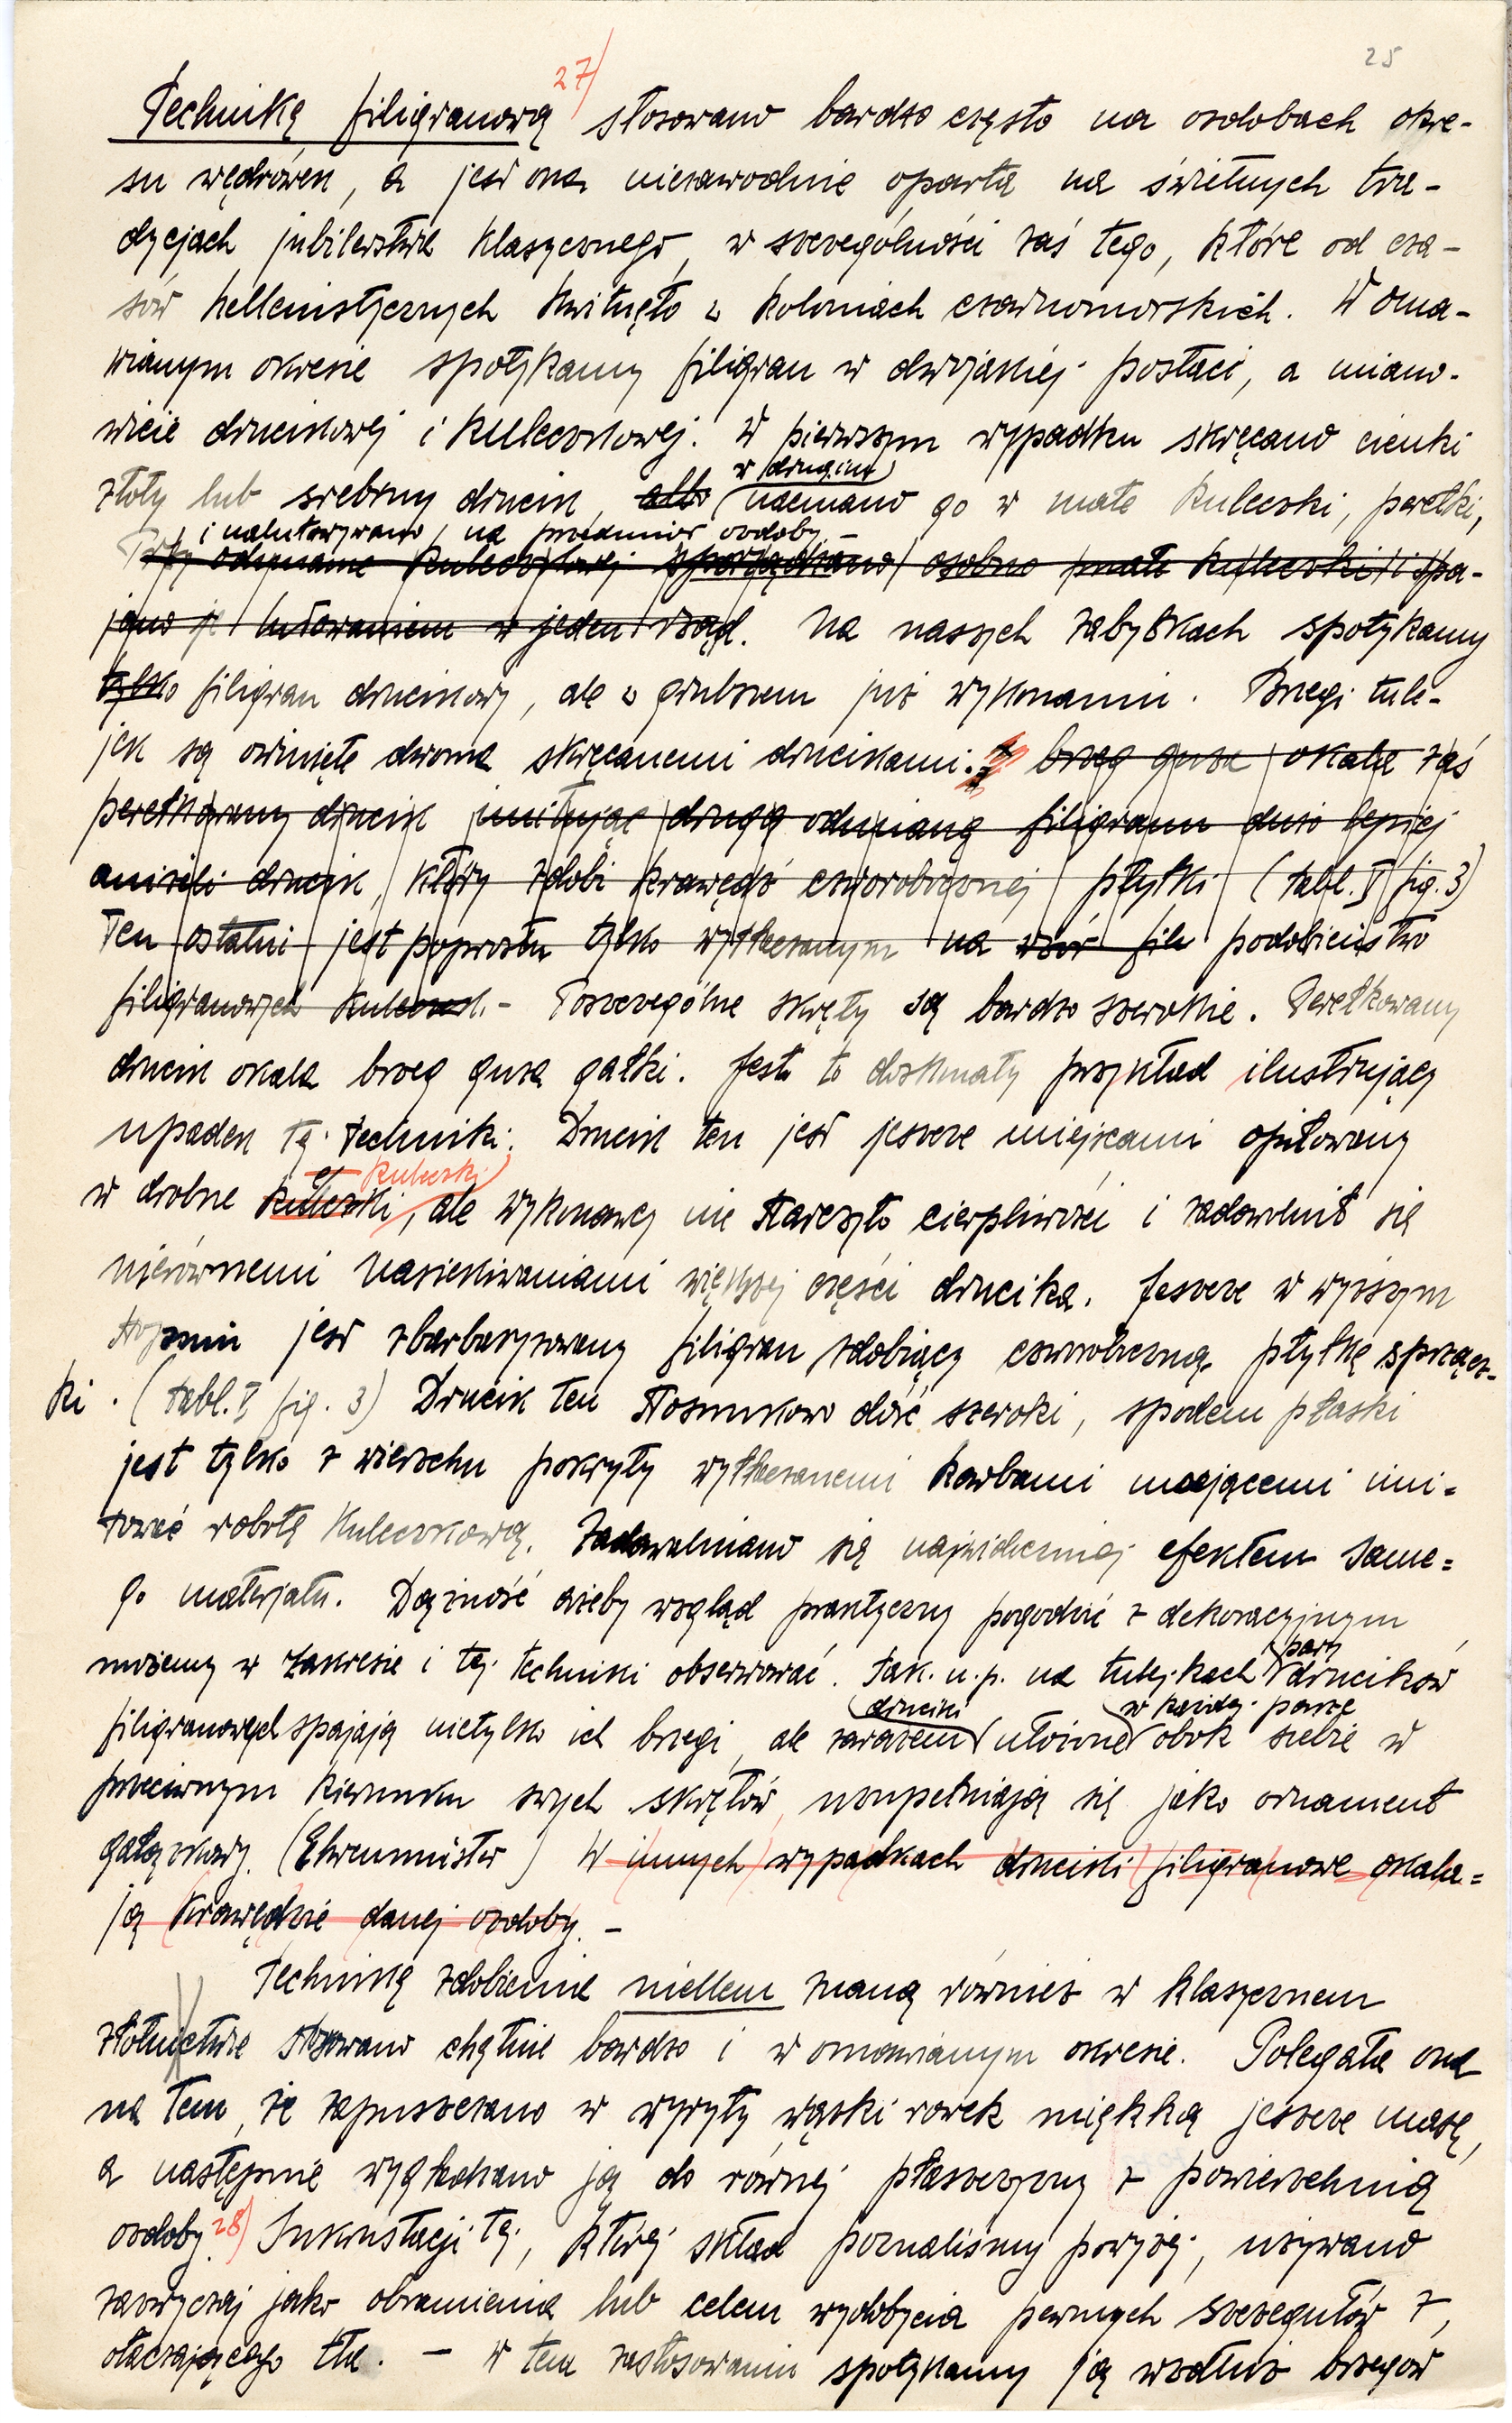 25
Techniką filigranową 27) stosowano bardzo często na ozdobach okre-
su wędrówek, a jest ona niezawodnie oparta na świetnych tra-
dycjach jubilerstwa klasycznego, w szczególności zaś tego, które od cza-
sów hellenistycznych kwitnęło w koloniach czarnomorskich. W oma-
wianym okresie spotykamy filigran w dwojakiej postaci, a miano-
wicie drucikowej i kuleczkowej. W pierwszym wypadku skręcano cienki
w drugim
złoty lub srebrny drucik, albo nacinano go w małe kuleczki, perełki,
i nalutowywano na przedmiot ozdoby –
Przy odmianie kuleczkowej sporządzano osobno małe kuleczki i spa-
jano je lutowaniem w jeden rząd. Na naszych zabytkach spotykamy
tylko filigran drucikowy, ale w grubszem już wykonaniu. Brzegi tule-
jek są owinięte dwoma skręcanemi drucikami. brzeg guza okala zaś
perełkowany drucik imitując drugą odmianę filigranu dużo lepiej
aniżeli drucik, który zdobi krawędź czworobocznej płytki (tabl. I fig. 3)
Ten ostatni jest poprostu tylko wytłaczanym na wzór fili podobieństwo
filigranowych kuleczek. – Poszczególne skręty są bardzo szerokie. Perełkowany
drucik okala brzeg guza gałki. Jest to doskonały przykład ilustrujący
upadek tej techniki. Drucik ten jest jeszcze miejscami opiłowany
kuleczki
w drobne kuleczki, ale wykonawcy nie starczyło cierpliwości i zadowolnił się
nierównemi nasiekiwaniami większej części drucika. Jeszcze w wyższym
stopniu jest zbarbaryzowany filigran zdobiący czworoboczną płytkę sprzącz-
ki. (tabl. I fig. 3) Drucik ten stosunkowo dość szeroki, spodem płaski
jest tylko z wierzchu pokryty wytłaczanemi karbami mającemi imi-
tować robotę kuleczkową. Zadawalniano się najwidoczniej efektem same-
go materjału. Dążność ażeby wzgląd praktyczny pogodzić z dekoracyjnym
możemy w zakresie i tej techniki obserwować. Tak n.p. na tulejkach pary drucików
druciki w każdej parze
filigranowych spajają nietylko ich brzegi, ale zarazem ułożone obok siebie w
przeciwnym kierunku swych skrętów, uzupełniają się jako ornament
gałązkowy. (Ährenmuster) W innych wypadkach druciki filigranowe okala-
ją krawędzie danej ozdoby. –
Techniką zdobienia niellem znaną również w klasycznem
złotnictwie stosowano chętnie bardzo i w omawianym okresie. Polegała ona
na tem, że zapuszczano w wyryty wąski rowek miękką jeszcze masę,
a następnie wygładzano ją do równej płaszczyzny z powierzchnią
ozdoby. 28) Inkrustacji tej, której skład poznaliśmy powyżej, używano
zazwyczaj jako obramienia lub celem wydobycia pewnych szczegułów z
otaczającego tła. – W tem zastosowaniu spotykamy ją wzdłuż brzegów